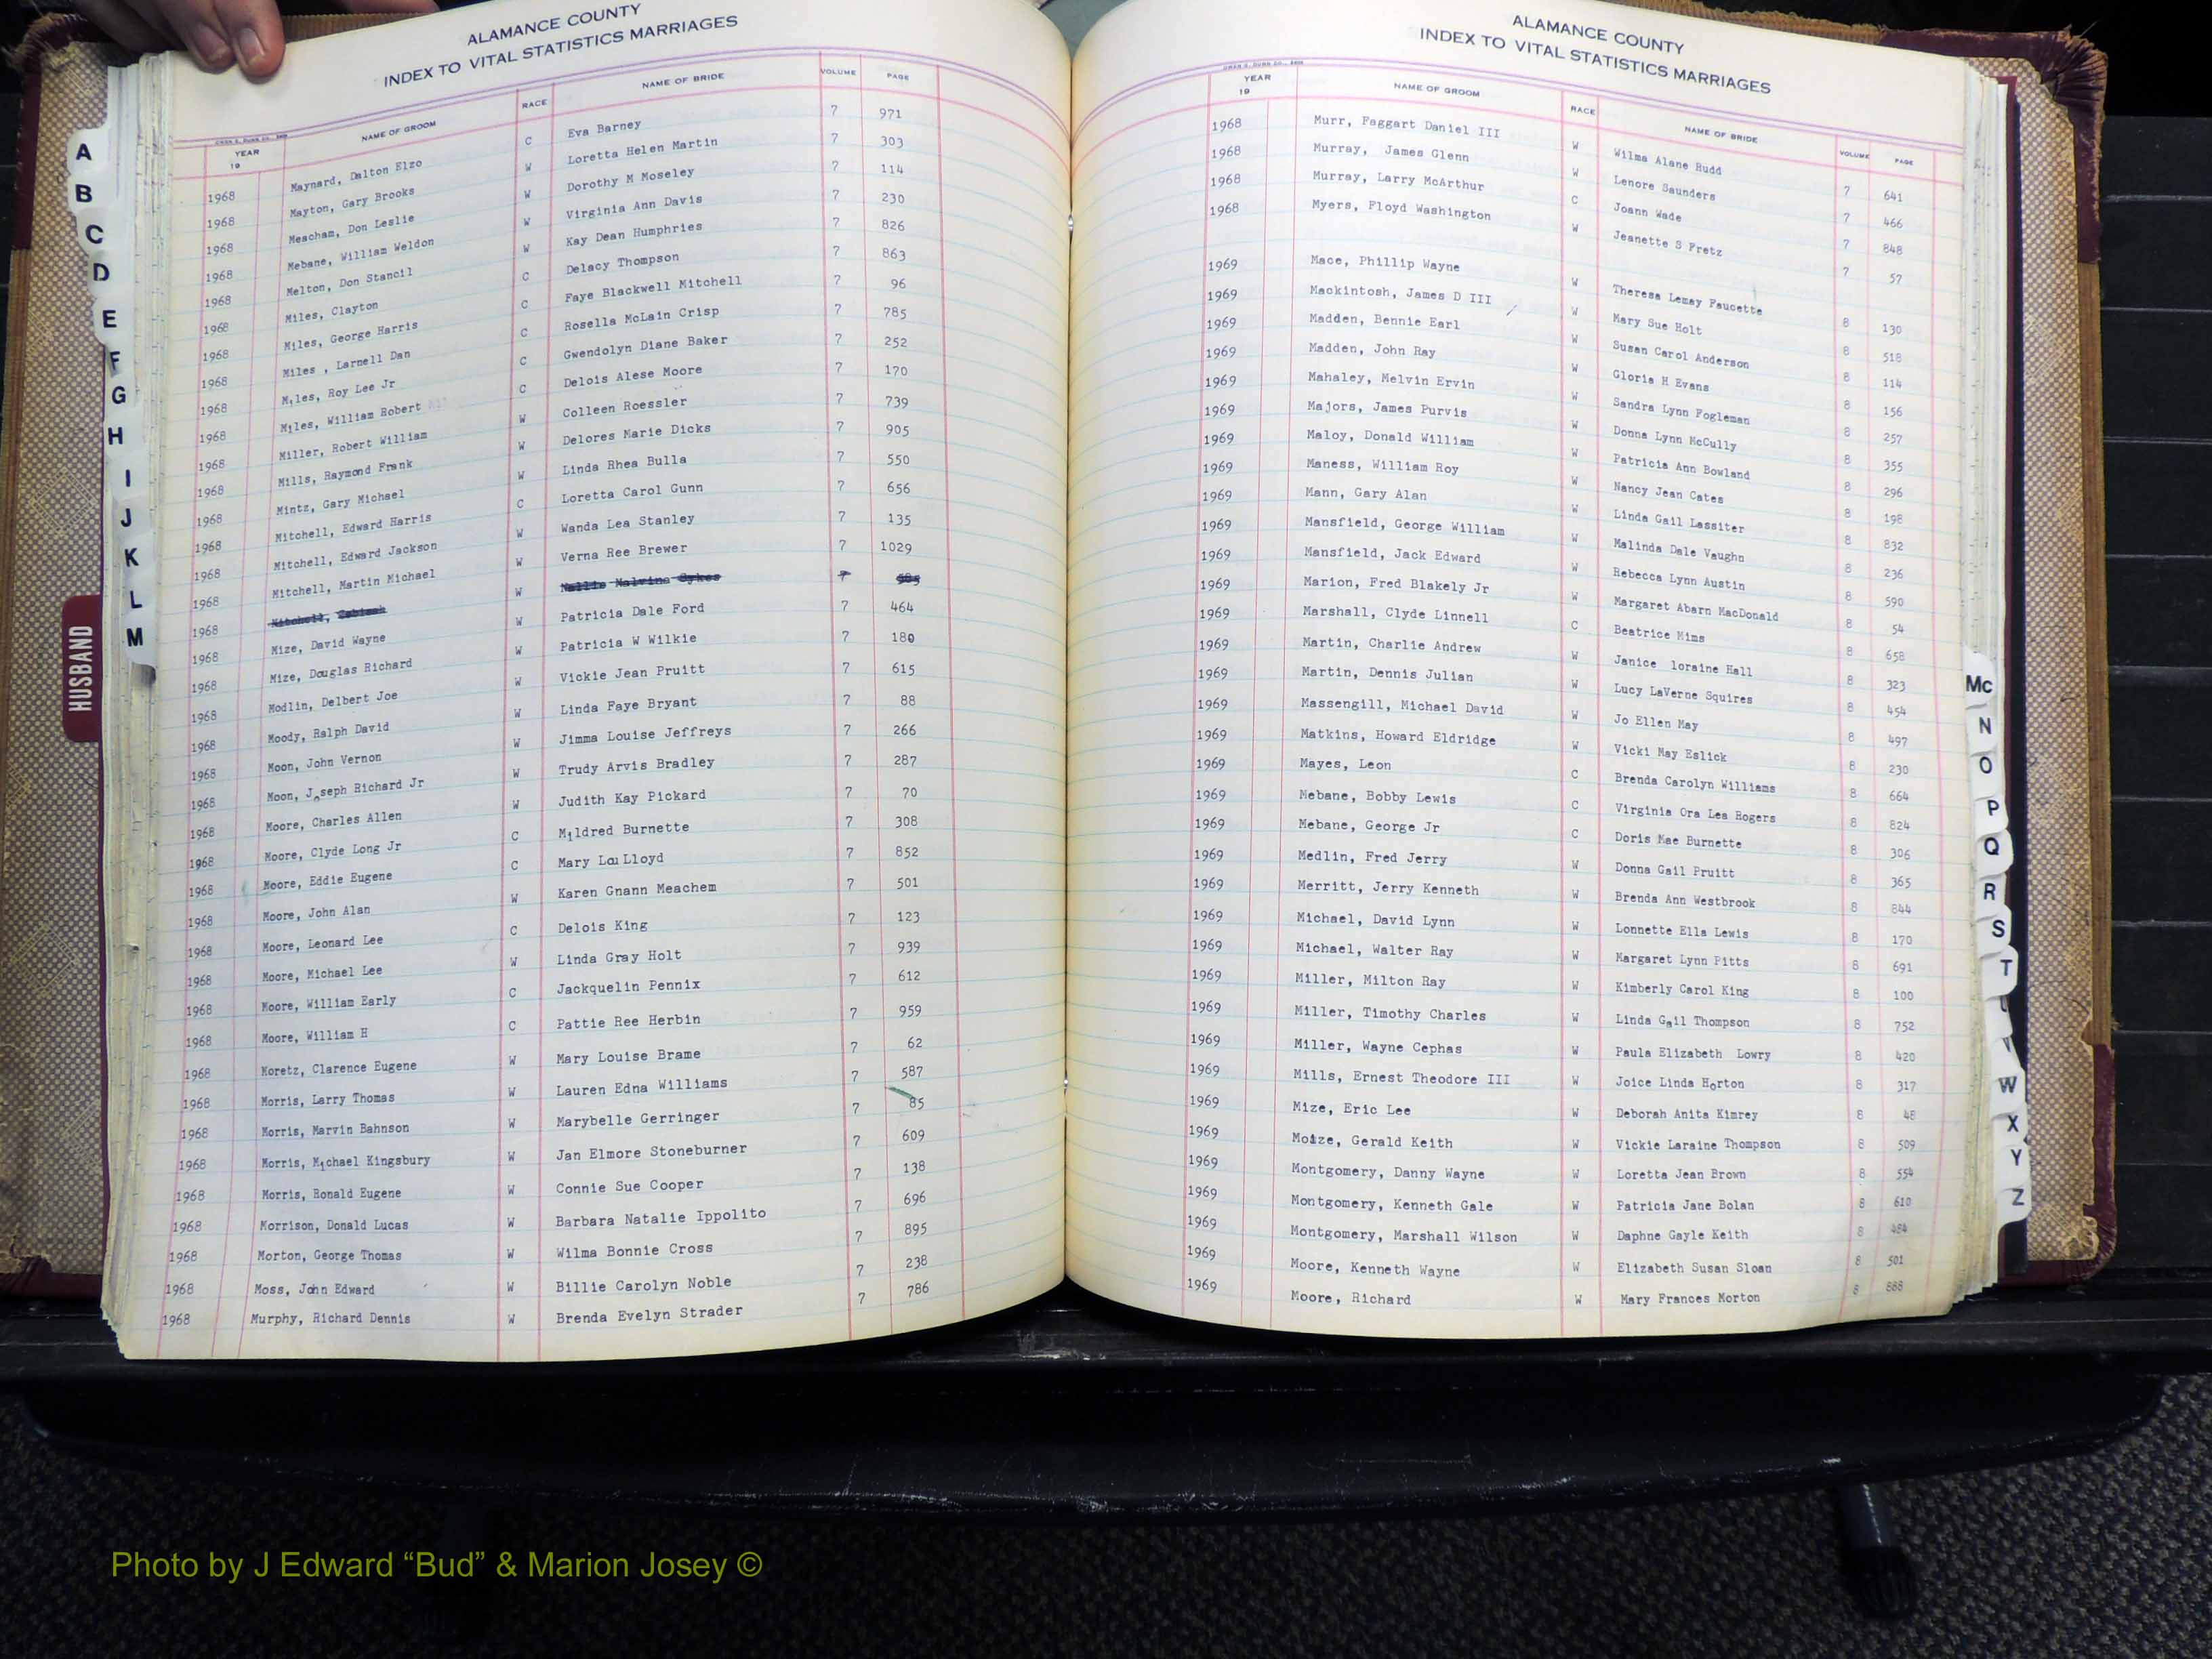 ALAMANCE COUNTY
INDEX TO VITAL STATISTICS MARRIAGES
YEAR 19 NAME OF GROOM RACE NAME OF BRIDE VOLUME PAGE
1968 Maynard, Dalton Elzo C Eva Barney 7 971
1968 Mayton, Gary Brooks W Loretta Helen Martin 7 303
1968 Meacham, Don Leslie W Dorothy M Moseley 7 114
1968 Mebane, William Weldon W Virginia Ann Davis 7 230
1968 Melton, Don Stancil W Kay Dean Humphries 7 826
1968 Miles, Clayton C Delacy Thompson 7 863
1968 Miles, George Harris C Faye Blackwell Mitchell 7 96
1968 Miles , Larnell Dan C Rosella McLain Crisp 7 785
1968 Miles, Roy Lee Jr C Gwendolyn Diane Baker 7 252
1968 Miles, William Robert C Delois Alese Moore 7 170
1968 Miller, Robert William W Colleen Roessler 7 739
1968 Mills, Raymond Frank W Delores Marie Dicks 7 905
1968 Mintz, Gary Michael W Linda Rhea Bulla 7 550
1968 Mitchell, Edward Harris C Loretta Carol Gunn 7 656
1968 Mitchell, Edward Jackson W Wanda Lea Stanley 7 135
1968 Mitchell, Martin Michael W Verna Ree Brewer 7 1029
1968 Mitchell, W Malvina Sykes 7
1968 Mize, David Wayne W Patricia Dale Ford 7 464
1968 Mize, Douglas Richard W Patricia W Wilkie 7 180
1968 Modlin, Delbert Joe W Vickie Jean Pruitt 7 615
1968 Moody, Ralph David W Linda Faye Bryant 7 88
1968 Moon, John Vernon W Jimma Louise Jeffreys 7 266
1968 Moon, Joseph Richard Jr W Trudy Arvis Bradley 7 287
1968 Moore, Charles Allen W Judith Kay Pickard 7 70
1968 Moore, Clyde Long Jr C Mildred Burnette 7 308
1968 Moore, Eddie Eugene C Mary Lou Lloyd 7 852
1968 Moore, John Alan W Karen Gnann Meachem 7 501
1968 Moore, Leonard Lee C Delois King 7 123
1968 Moore, Michael Lee W Linda Gray Holt 7 939
1968 Moore, William Early C Jackquelin Pennix 7 612
1968 Moore, William H C Pattie Ree Herbin 7 959
1968 Moretz, Clarence Eugene W Mary Louise Brame 7 62
1968 Morris, Larry Thomas W Lauren Edna Williams 7 587
1968 Morris, Marvin Bahnson W Marybelle Gerringer 7 85
1968 Morris, Michael Kingsbury W Jan Elmore Stoneburner 7 609
1968 Morris, Ronald Eugene W Connie Sue Cooper 7 138
1968 Morrison, Donald Lucas W Barbara Natalie Ippolito 7 696
1968 Morton, George Thomas W Wilma Bonnie Cross 7 895
1968 Moss, John Edward W Billie Carolyn Noble 7 238
1968 Murphy, Richard Dennis W Brenda Evelyn Strader 7 786
A
B
C
D
E
F
G
H
I
J
K
L
M
HUSBAND
ALAMANCE COUNTY
INDEX TO VITAL STATISTICS MARRIAGES
YEAR 19 NAME OF GROOM RACE NAME OF BRIDE VOLUME PAGE
1968 Murr, Faggart Daniel III W Wilma Alane Rudd 7 641
1968 Murray, James Glenn W Lenore Saunders 7 466
1968 Murray, Larry McArthur C Joann Wade 7 848
1968 Myers, Floyd Washington W Jeanette S Fretz 7 57
1969 Mace, Phillip Wayne W Theresa Lemay Faucette 8 130
1969 Mackintosh, James D III W Mary Sue Holt 8 518
1969 Madden, Bennie Earl W Susan Carol Anderson 8 114
1969 Madden, John Ray W Gloria H Evans 8 156
1969 Mahaley, Melvin Ervin W Sandra Lynn Fogleman 8 257
1969 Majors, James Purvis W Donna Lynn McCully 8 355
1969 Maloy, Donald William W Patricia Ann Bowland 8 296
1969 Maness, William Roy W Nancy Jean Cates 8 198
1969 Mann, Gary Alan W Linda Gail Lassiter 8 832
1969 Mansfield, George William W Malinda Dale Vaughn 8 236
1969 Mansfield, Jack Edward W Rebecca Lynn Austin 8 590
1969 Marion, Fred Blakely Jr W Margaret Abarn MacDonald 8 54
1969 Marshall, Clyde Linnell C Beatrice Mims 8 658
1969 Martin, Charlie Andrew W Janice loraine Hall 8 323
1969 Martin, Dennis Julian W Lucy LaVerne Squires 8 454
1969 Massengill, Michael David W Jo Ellen May 8 497
1969 Matkins, Howard Eldridge W Vicki May Eslick 8 230
1969 Mayes, Leon C Brenda Carolyn Williams 8 664
1969 Mebane, Bobby Lewis C Virginia Ora Lea Rogers 8 824
1969 Mebane, George Jr C Doris Mae Burnette 8 306
1969 Medlin, Fred Jerry W Donna Gail Pruitt 8 365
1969 Merritt, Jerry Kenneth W Brenda Ann Westbrook 8 844
1969 Michael, David Lynn W Lonnette Ella Lewis 8 170
1969 Michael, Walter Ray W Margaret Lynn Pitts 8 691
1969 Miller, Milton Ray W Kimberly Carol King 8 100
1969 Miller, Timothy Charles W Linda Gail Thompson 8 752
1969 Miller, Wayne Cephas W Paula Elizabeth Lowry 8 420
1969 Mills, Ernest Theodore III W Joice Linda Horton 8 317
1969 Mize, Eric Lee W Deborah Anita Kimrey 8 48
1969 Moize, Gerald Keith W Vickie Laraine Thompson 8 509
1969 Montgomery, Danny Wayne W Loretta Jean Brown 8 554
1969 Montgomery, Kenneth Gale W Patricia Jane Bolan 8 610
1969 Montgomery, Marshall Wilson W Daphne Gayle Keith 8 484
1969 Moore, Kenneth Wayne W Elizabeth Susan Sloan 8 501
1969 Moore, Richard W Mary Frances Morton 8 888
Mc
N
O
P
Q
R
S
T
V
W
X
Y
Z
Photo by J Edward “Bud” & Marion Josey ©